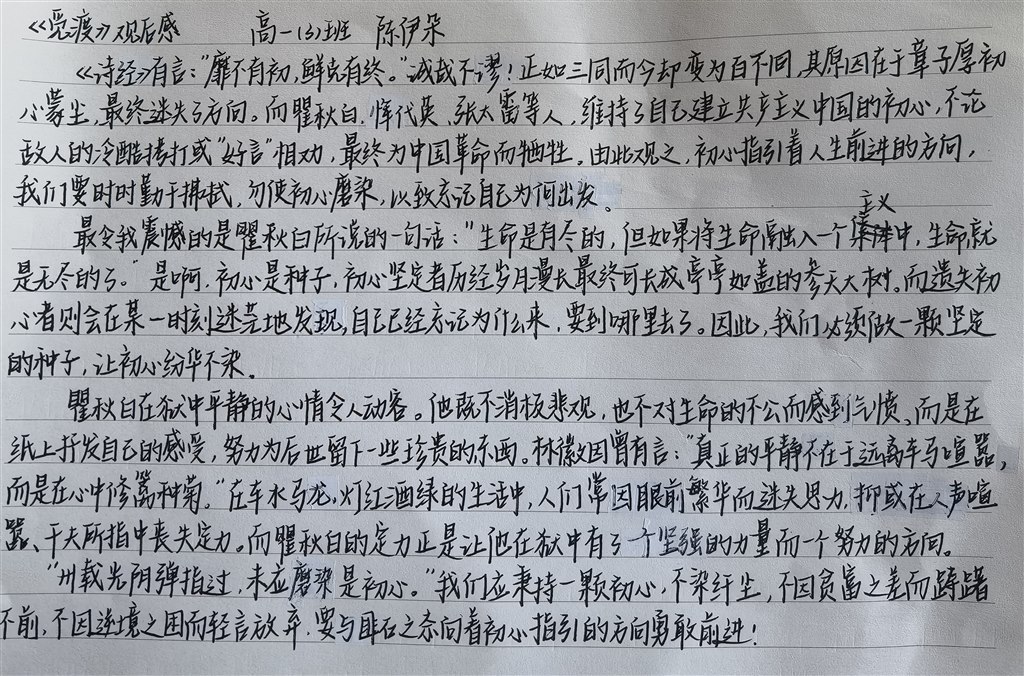 《觅渡》观后感 高一(3)班 陈伊朵
《诗经》有言："靡不有初，鲜克有终。"诚哉不谬！正如三同而今却变为百不同，其原因在于章子厚初
心蒙尘，最终迷失了方向。而瞿秋白、恽代英、张太雷等人，维持了自己建立共产主义中国的初心，不论
敌人的冷酷拷打或"好言"相劝，最终为中国革命而牺牲。由此观之，初心指引着人生前进的方向，
我们要时时勤于拂拭，勿使初心磨染，以致忘记自己为何出发。
最令我震憾的是瞿秋白所说的一句话："生命是有尽的，但如果将生命融入一个主义中，生命就
是无尽的了。"是啊，初心是种子，初心坚定者历经岁月漫长最终可长成亭亭如盖的参天大树。而遗失初
心者则会在某一时刻迷茫地发现，自己已经忘记为什么来，要到哪里去了。因此，我们必须做一颗坚定
的种子，让初心纷华不染。
瞿秋白在狱中平静的心情令人动容。他既不消极悲观，也不对生命的不公而感到气愤、而是在
纸上抒发自己的感受，努力为后世留下一些珍贵的东西。林徽因曾有言："真正的平静不在于远离车马喧嚣，
而是在心中修篱种菊。"在车水马龙，灯红酒绿的生活中，人们常因眼前繁华而迷失思力，抑或在人声喧
嚣、千夫所指中丧失定力。而瞿秋白的定力正是让他在狱中有了一个坚强的力量而一个努力的方向。
"卅载光阴弹指过，未应磨染是初心。"我们应秉持一颗初心，不染纤尘，不因贫富之差而踌躇
不前，不因逆境之困而轻言放弃，要与匪石之态向着初心指引的方向勇敢前进！